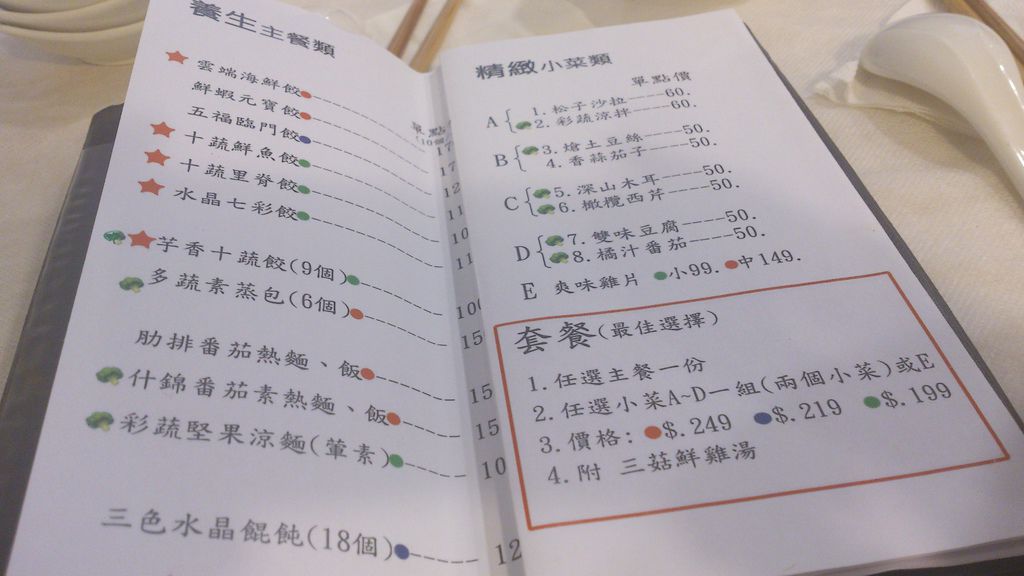 養生主餐類
單點
(10個
雲端海鮮餃
鮮蝦元寶餃
五福臨門餃
十蔬鮮魚餃
十蔬里脊餃
水晶七彩餃
芋香十蔬餃(9個)
多蔬素蒸包(6個)
肋排番茄熱麵、飯
什錦番茄素熱麵、飯
彩蔬堅果涼麵(葷素)
三色水晶餛飩(18個)
精緻小菜類
單點價
A
1.松子沙拉-----60.
2.彩蔬涼拌----60.
B
3.燴土豆絲----50.
4.香蒜茄子----50.
C
5.深山木耳-----50.
6.橄欖西芹----50.
D
7.雙味豆腐----50.
8.橘汁番茄----50.
E 爽味雞片 小99. 中149.
套餐(最佳選擇)
1.任選主餐一份
2.任選小菜A-D一組(兩個小菜)或E
3.價格: $.249 $.219 $.199
4.附 三菇鮮雞湯